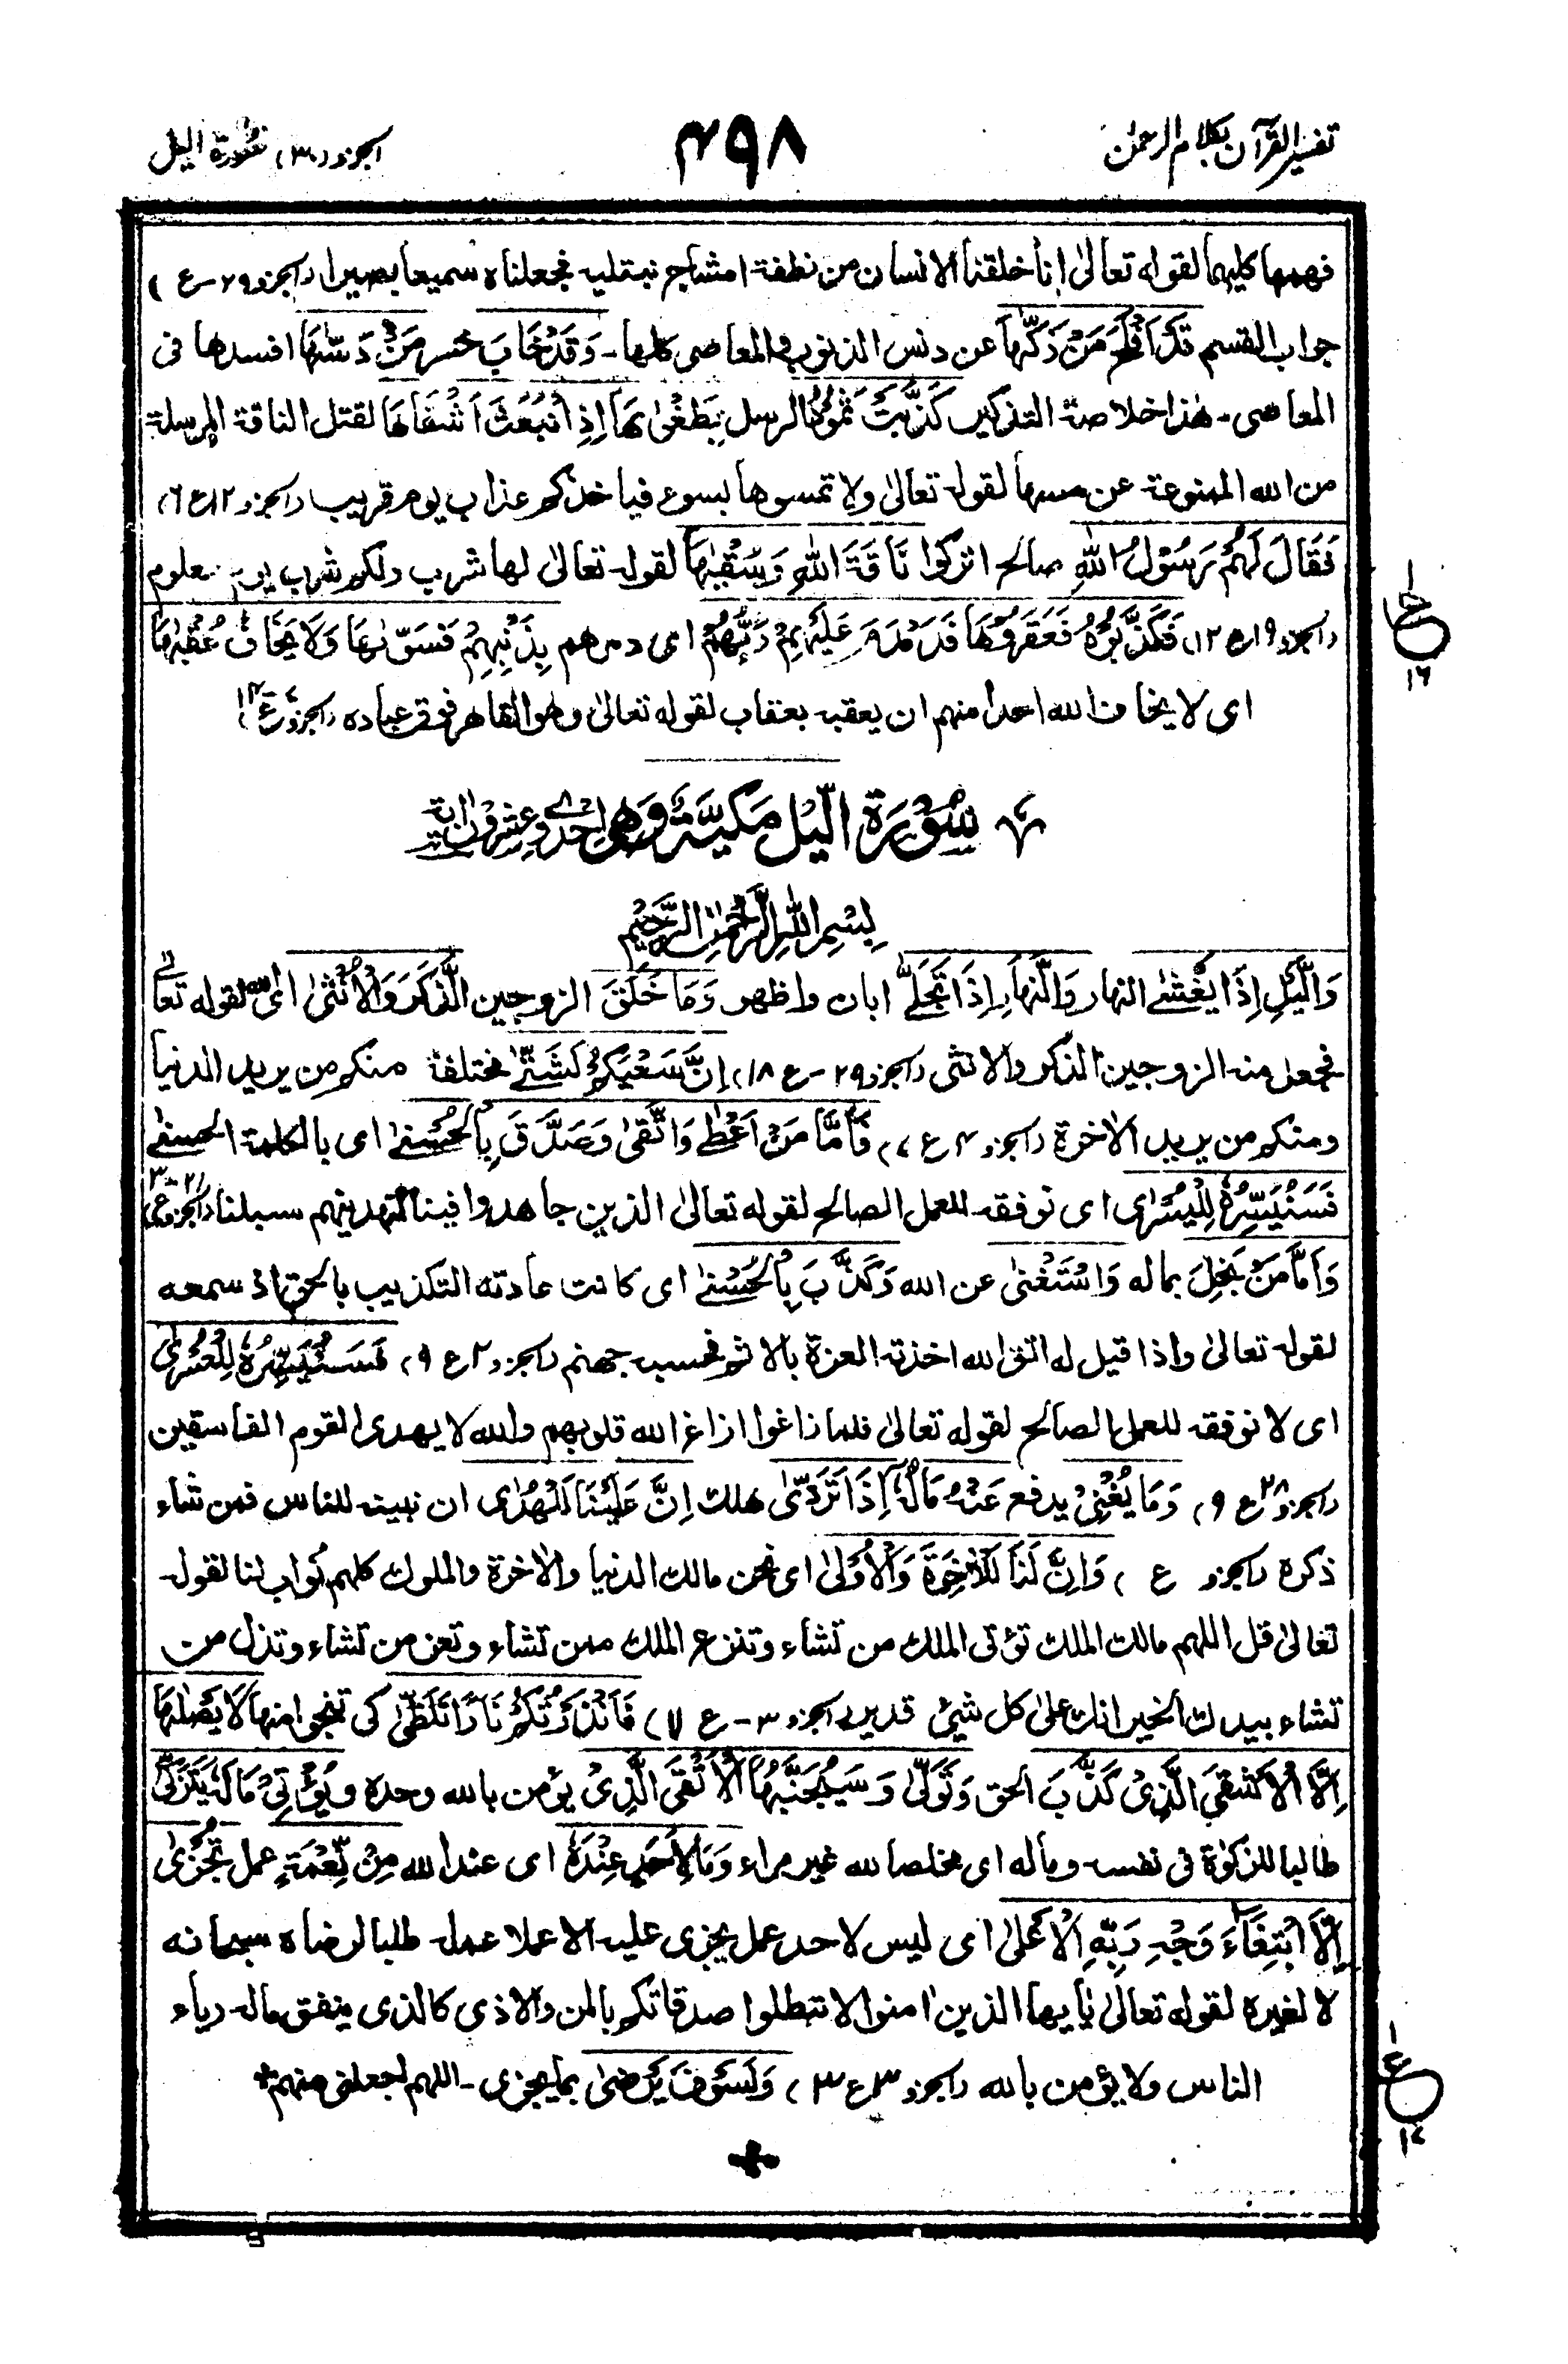 تفسير القرآن بكلام الرحمن
٣٩٨
الجزو (٣٠) سورة اليل
فهمها كليهما لقوله تعالىٰ انا خلقنا الانسان من نطفة امشاج نبتليه فجعلناه سميعا بصيرا (الجزو ٢٩-ع )
جواب القسم قَدْ اَفْلَحَ مَنْ زَكّٰهَا عن دنس الذنوب والمعاصى كلها - وَقَدْ خَابَ خسر مَنْ دَسّٰهَا افسدها فى
المعاصى - هٰذا خلاصة التذكير كَذَّبَتْ ثَمُوْدُ الرسل بِطَغْوٰىهَا اِذِ انْۢبَعَثَ اَشْقٰهَا لقتل الناقة المرسلة
من الله الممنوعة عن مسها لقوله تعالىٰ ولا تمسوها بسوء فياخذكم عذاب يوم قريب (الجزو ١٢ ع ٦)
فَقَالَ لَهُمْ رَسُوْلُ اللّٰهِ صالح اتركوا نَاقَةَ اللّٰهِ وَسُقْيٰهَا لقوله تعالىٰ لها شرب ولكم شرب يوم معلوم
(الجزو ١٩ ع ١٢) فَكَذَّبُوْهُ فَعَقَرُوْهَا فَدَمْدَمَ عَلَيْهِمْ رَبُّهُمْ اى دمرهم بِذَنْۢبِهِمْ فَسَوّٰىهَا وَلَا يَخَافُ عُقْبٰهَا
اى لا يخاف الله احدا منهم ان يعقبه بعقاب لقوله تعالىٰ وهو القاهر فوق عباده (الجزو ٧ ع ١٤)
سُوْرَةُ الَّيْلِ مَكِّيَّةٌ وَهِىَ اِحْدٰى وَعِشْرُوْنَ اٰيَةً
بِسْمِ اللّٰهِ الرَّحْمٰنِ الرَّحِيْمِ
وَالَّيْلِ اِذَا يَغْشٰى النهار وَالنَّهَارِ اِذَا تَجَلّٰى ابان واظهر وَمَا خَلَقَ الزوجين الذَّكَرَ وَالْاُنْثٰى اى منه لقوله تعالىٰ
فجعل منه الزوجين الذكر والانثى (الجزو ٢٩-ع ١٨) اِنَّ سَعْيَكُمْ لَشَتّٰى مختلفة منكم من يريد الدنيا
ومنكم من يريد الاٰخرة (الجزو ٤ ع ٧) فَاَمَّا مَنْ اَعْطٰى وَاتَّقٰى وَصَدَّقَ بِالْحُسْنٰى اى بالكلمة الحسنى
فَسَنُيَسِّرُهٗ لِلْيُسْرٰى اى نوفقه للعمل الصالح لقوله تعالىٰ الذين جاهدوا فينا لنهدينهم سبلنا (الجزو ٢١ ع ٣)
وَاَمَّا مَنْۢ بَخِلَ بماله وَاسْتَغْنٰى عن الله وَكَذَّبَ بِالْحُسْنٰى اى كانت عادته التكذيب بالحق اذ سمعه
لقوله تعالىٰ واذا قيل له اتق الله اخذته العزة بالاثم فحسبه جهنم (الجزو ٢ ع ٩) فَسَنُيَسِّرُهٗ لِلْعُسْرٰى
اى لا نوفقه للعمل الصالح لقوله تعالىٰ فلما زاغوا ازاغ الله قلوبهم والله لا يهدى القوم الفاسقين
(الجزو ٢٨ ع ٩) وَمَا يُغْنِىْ يدفع عَنْهُ مَالُهٗٓ اِذَا تَرَدّٰى هلك اِنَّ عَلَيْنَا لَلْهُدٰى ان نبينه للناس فمن شاء
ذكره (الجزو ع ) وَاِنَّ لَنَا لَلْاٰخِرَةَ وَالْاُوْلٰى اى نحن مالك الدنيا والاٰخرة والملوك كلهم نواب لنا لقوله
تعالىٰ قل اللهم مالك الملك تؤتى الملك من تشاء وتنزع الملك ممن تشاء وتعز من تشاء وتذل من
تشاء بيدك الخير انك علىٰ كل شىء قدير (الجزو ٣-ع ١١) فَاَنْذَرْتُكُمْ نَارًا تَلَظّٰى كى تنجوا منها لَا يَصْلٰهَا
اِلَّا الْاَشْقَى الَّذِىْ كَذَّبَ الحق وَتَوَلّٰى وَسَيُجَنَّبُهَا الْاَتْقَى الَّذِىْ يؤمن بالله وحده ويُؤْتِىْ مَالَهٗ يَتَزَكّٰى
طالبا للزكوٰة فى نفسه وماله اى مخلصا لله غير مراء وَمَا لِاَحَدٍ عِنْدَهٗ اى عند الله مِنْ نِّعْمَةٍ عمل تُجْزٰى
اِلَّا ابْتِغَآءَ وَجْهِ رَبِّهِ الْاَعْلٰى اى ليس لاحد عمل يجزى عليه الا عملا عمله طلبا لرضاه سبحانه
لا لغيره لقوله تعالىٰ يٰايها الذين اٰمنوا لا تبطلوا صدقاتكم بالمن والاذى كالذى ينفق ماله رياء
الناس ولا يؤمن بالله (الجزو ٣ ع ٣) وَلَسَوْفَ يَرْضٰى بما يجزى - اللهم اجعلنى منهم
ع
١٦
ع
١٧